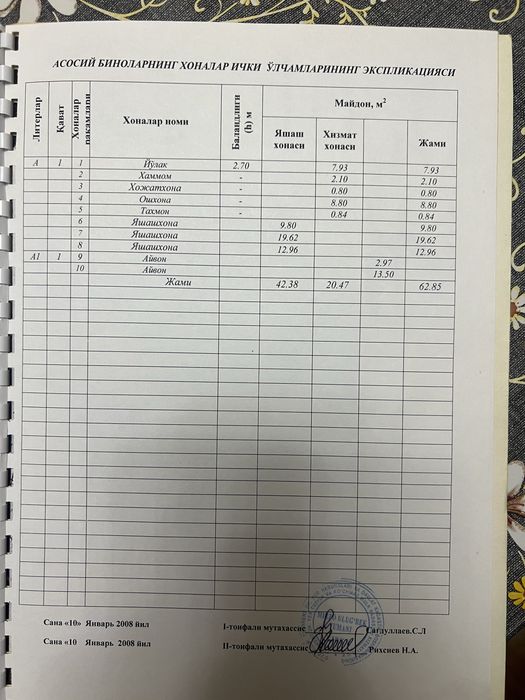 АСОСИЙ БИНОЛАРНИНГ ХОНАЛАР ИЧКИ ЎЛЧАМЛАРИНИНГ ЭКСПЛИКАЦИЯСИ
Литерлар Қават Хоналар рақамлари Хоналар номи Баландлиги (h) м Майдон, м²
Яшаш хонаси Хизмат хонаси Жами
А 1 1 Йўлак 2.70 7.93 7.93
2 Хаммом - 2.10 2.10
3 Хожатхона - 0.80 0.80
4 Ошхона - 8.80 8.80
5 Тахмон - 0.84 0.84
6 Яшашхона 9.80 9.80
7 Яшашхона 19.62 19.62
8 Яшашхона 12.96 12.96
А1 1 9 Айвон 2.97
10 Айвон 13.50
Жами 42.38 20.47 62.85
Сана «10» Январь 2008 йил I-тоифали мутахассис Сагдуллаев.С.Л
Сана «10 Январь 2008 йил II-тоифали мутахассис Рихсиев Н.А.